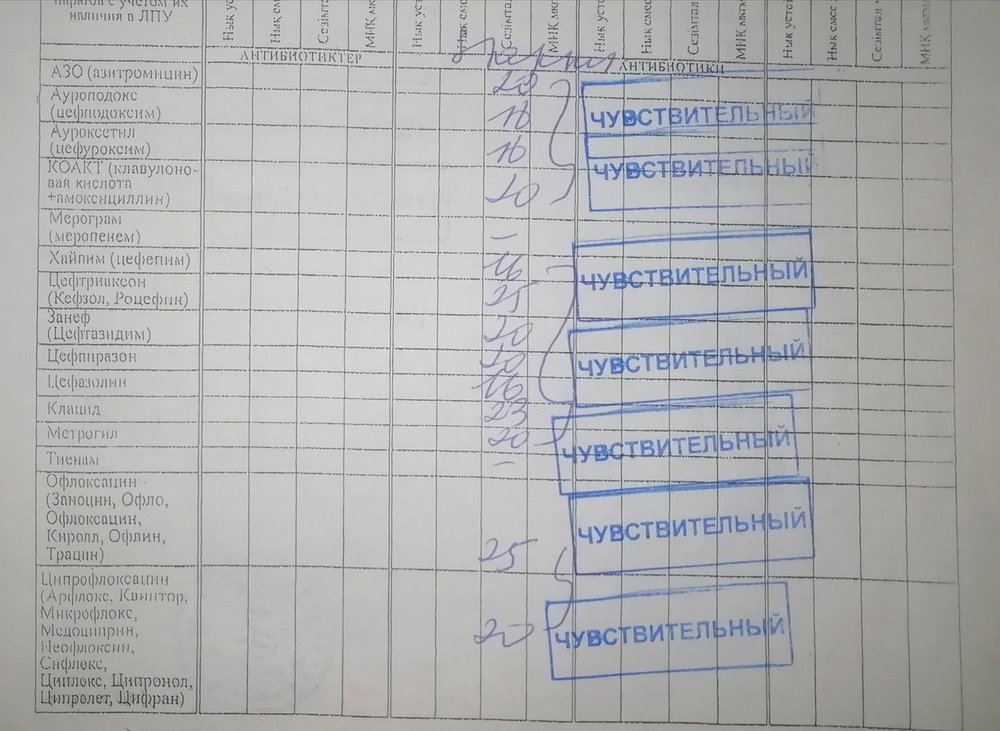 паратов с учетом их
наличия в ЛПУ
Нық устой
Нық емес
Сезімтал
МНК мкгм
Нық устой
Нық емес
МНК мкгм
Нық устой
Нық емес
Сезімтал
МНК мкгм
Нық устой
Нық емес
Сезімтал
МНК мкгм
АНТИБИОТИКТЕР
АНТИБИОТИКИ
АЗО (азитромицин)
20
Ауроподокс
(цефподоксим)
16
ЧУВСТВИТЕЛЬНЫЙ
Ауроксетил
(цефуроксим)
16
ЧУВСТВИТЕЛЬНЫЙ
КОАКТ (клавулоно-
вая кислота
+амоксициллин)
20
Мерограм
(меропенем)
–
Хайпим (цефепим)
16
ЧУВСТВИТЕЛЬНЫЙ
Цефтриаксон
(Кефзол, Роцефин)
25
Занеф
(Цефтазидим)
20
Цефпиразон
20
ЧУВСТВИТЕЛЬНЫЙ
Цефазолин
16
Клацид
23
Метрогил
20
ЧУВСТВИТЕЛЬНЫЙ
Тиенам
–
Офлоксацин
(Заноцин, Офло,
Офлоксацин,
Киролл, Офлин,
Трацин)
25
ЧУВСТВИТЕЛЬНЫЙ
Ципрофлоксацин
(Арфлокс, Квинтор,
Микрофлокс,
Медоциприн,
Неофлоксин,
Сифлокс,
Циплокс, Ципронол,
Ципролет, Цифран)
20
ЧУВСТВИТЕЛЬНЫЙ